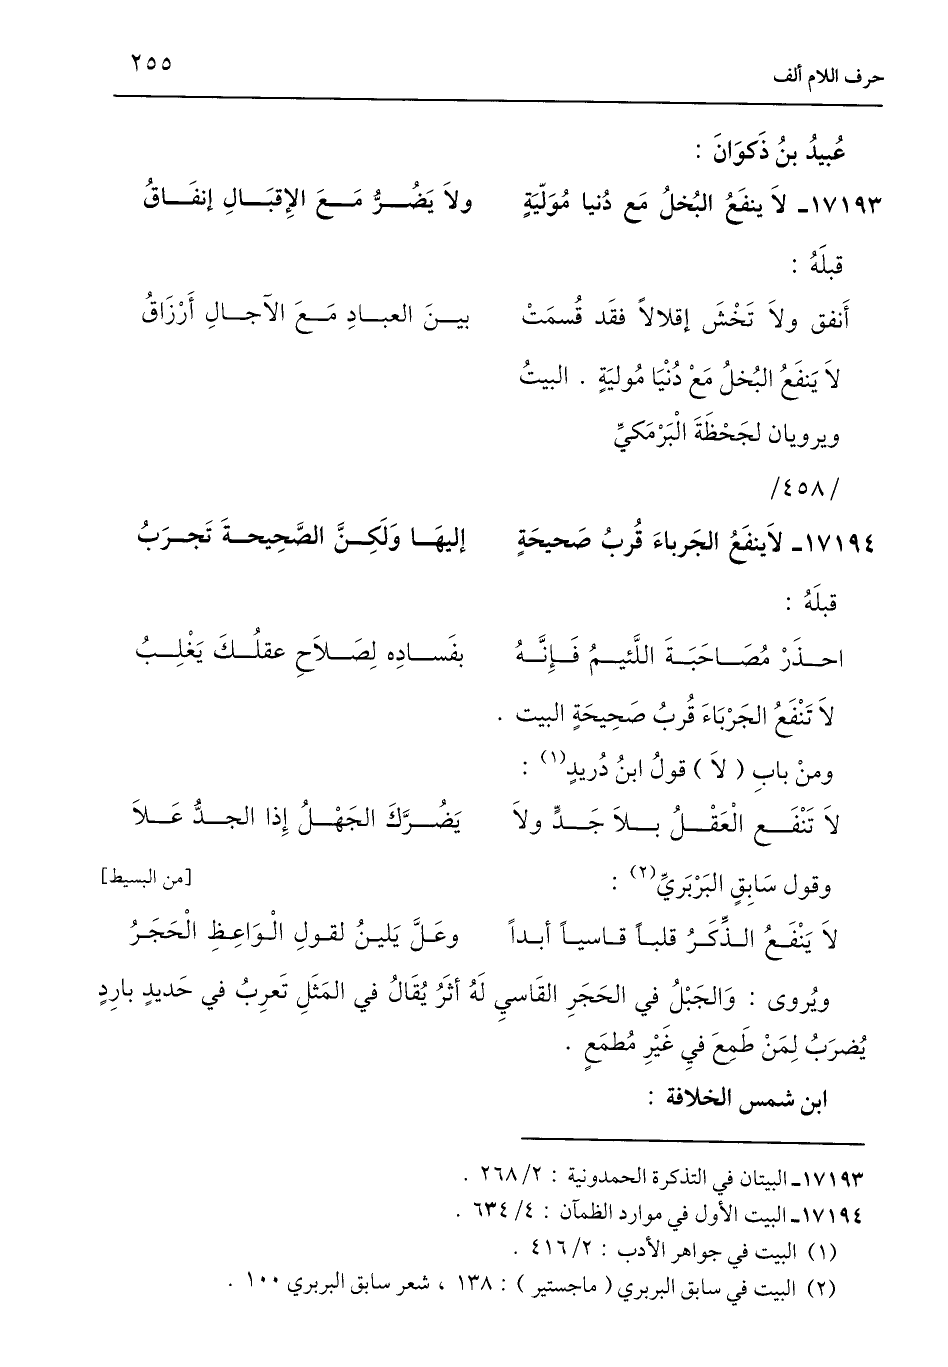 حرف اللام ألف ٢٥٥
عُبيدُ بنُ ذَكوَانَ :
١٧١٩٣ـ لاَ ينفَعُ البُخلُ مَع دُنيا مُوَلّيَةٍ ولاَ يَضُرُّ مَعَ الإِقبَالِ إنفَاقُ
قبلَهُ :
أَنفق ولاَ تَخْشَ إقلالاً فقَد قُسمَتْ بينَ العبادِ مَعَ الآجالِ أَرْزَاقُ
لاَ يَنفَعُ البُخلُ مَعْ دُنْيَا مُوليَةٍ . البيتُ
ويرويان لجَحْظَةَ الْبَرْمَكيِّ
/٤٥٨/
١٧١٩٤ـ لاَينفَعُ الجَرباءَ قُربُ صَحيحَةٍ إليهَا وَلَكِنَّ الصَّحِيحةَ تَجرَبُ
قبلَهُ :
احذَرْ مُصَاحَبَةَ اللَّئيمُ فَإِنَّهُ بفَسادِه لِصَلاَحِ عقلُكَ يَغْلِبُ
لاَ تَنْفَعُ الجَرْبَاءَ قُربُ صَحِيحَةٍ البيت .
ومنْ بابِ ( لاَ ) قولُ ابنُ دُريدٍ(١) :
لاَ تَنْفَعِ الْعَقْلُ بلاَ جَدٍّ ولاَ يَضُرَّكَ الجَهْلُ إِذا الجدُّ عَلاَ
وقول سَابِقٍ البَرْبَريِّ(٢) : [من البسيط]
لاَ يَنْفَعُ الذِّكَرُ قلباً قاسياً أبداً وعَلَّ يَلينُ لقولِ الْوَاعِظِ الْحَجَرُ
ويُروى : وَالحَبْلُ في الحَجَرِ القَاسيِ لَهُ أثَرُ يُقَالُ في المَثَلِ تَعرِبُ في حَديدٍ باردٍ
يُضرَبُ لِمَنْ طَمِعَ فيِ غَيْرِ مُطمَعٍ .
ابن شمس الخلافة :
١٧١٩٣ـ البيتان في التذكرة الحمدونية : ٢/ ٢٦٨ .
١٧١٩٤ـ البيت الأول في موارد الظمآن : ٤/ ٦٣٤ .
(١) البيت في جواهر الأدب : ٢/ ٤١٦ .
(٢) البيت في سابق البربري ( ماجستير ) : ١٣٨ ، شعر سابق البربري ١٠٠ .